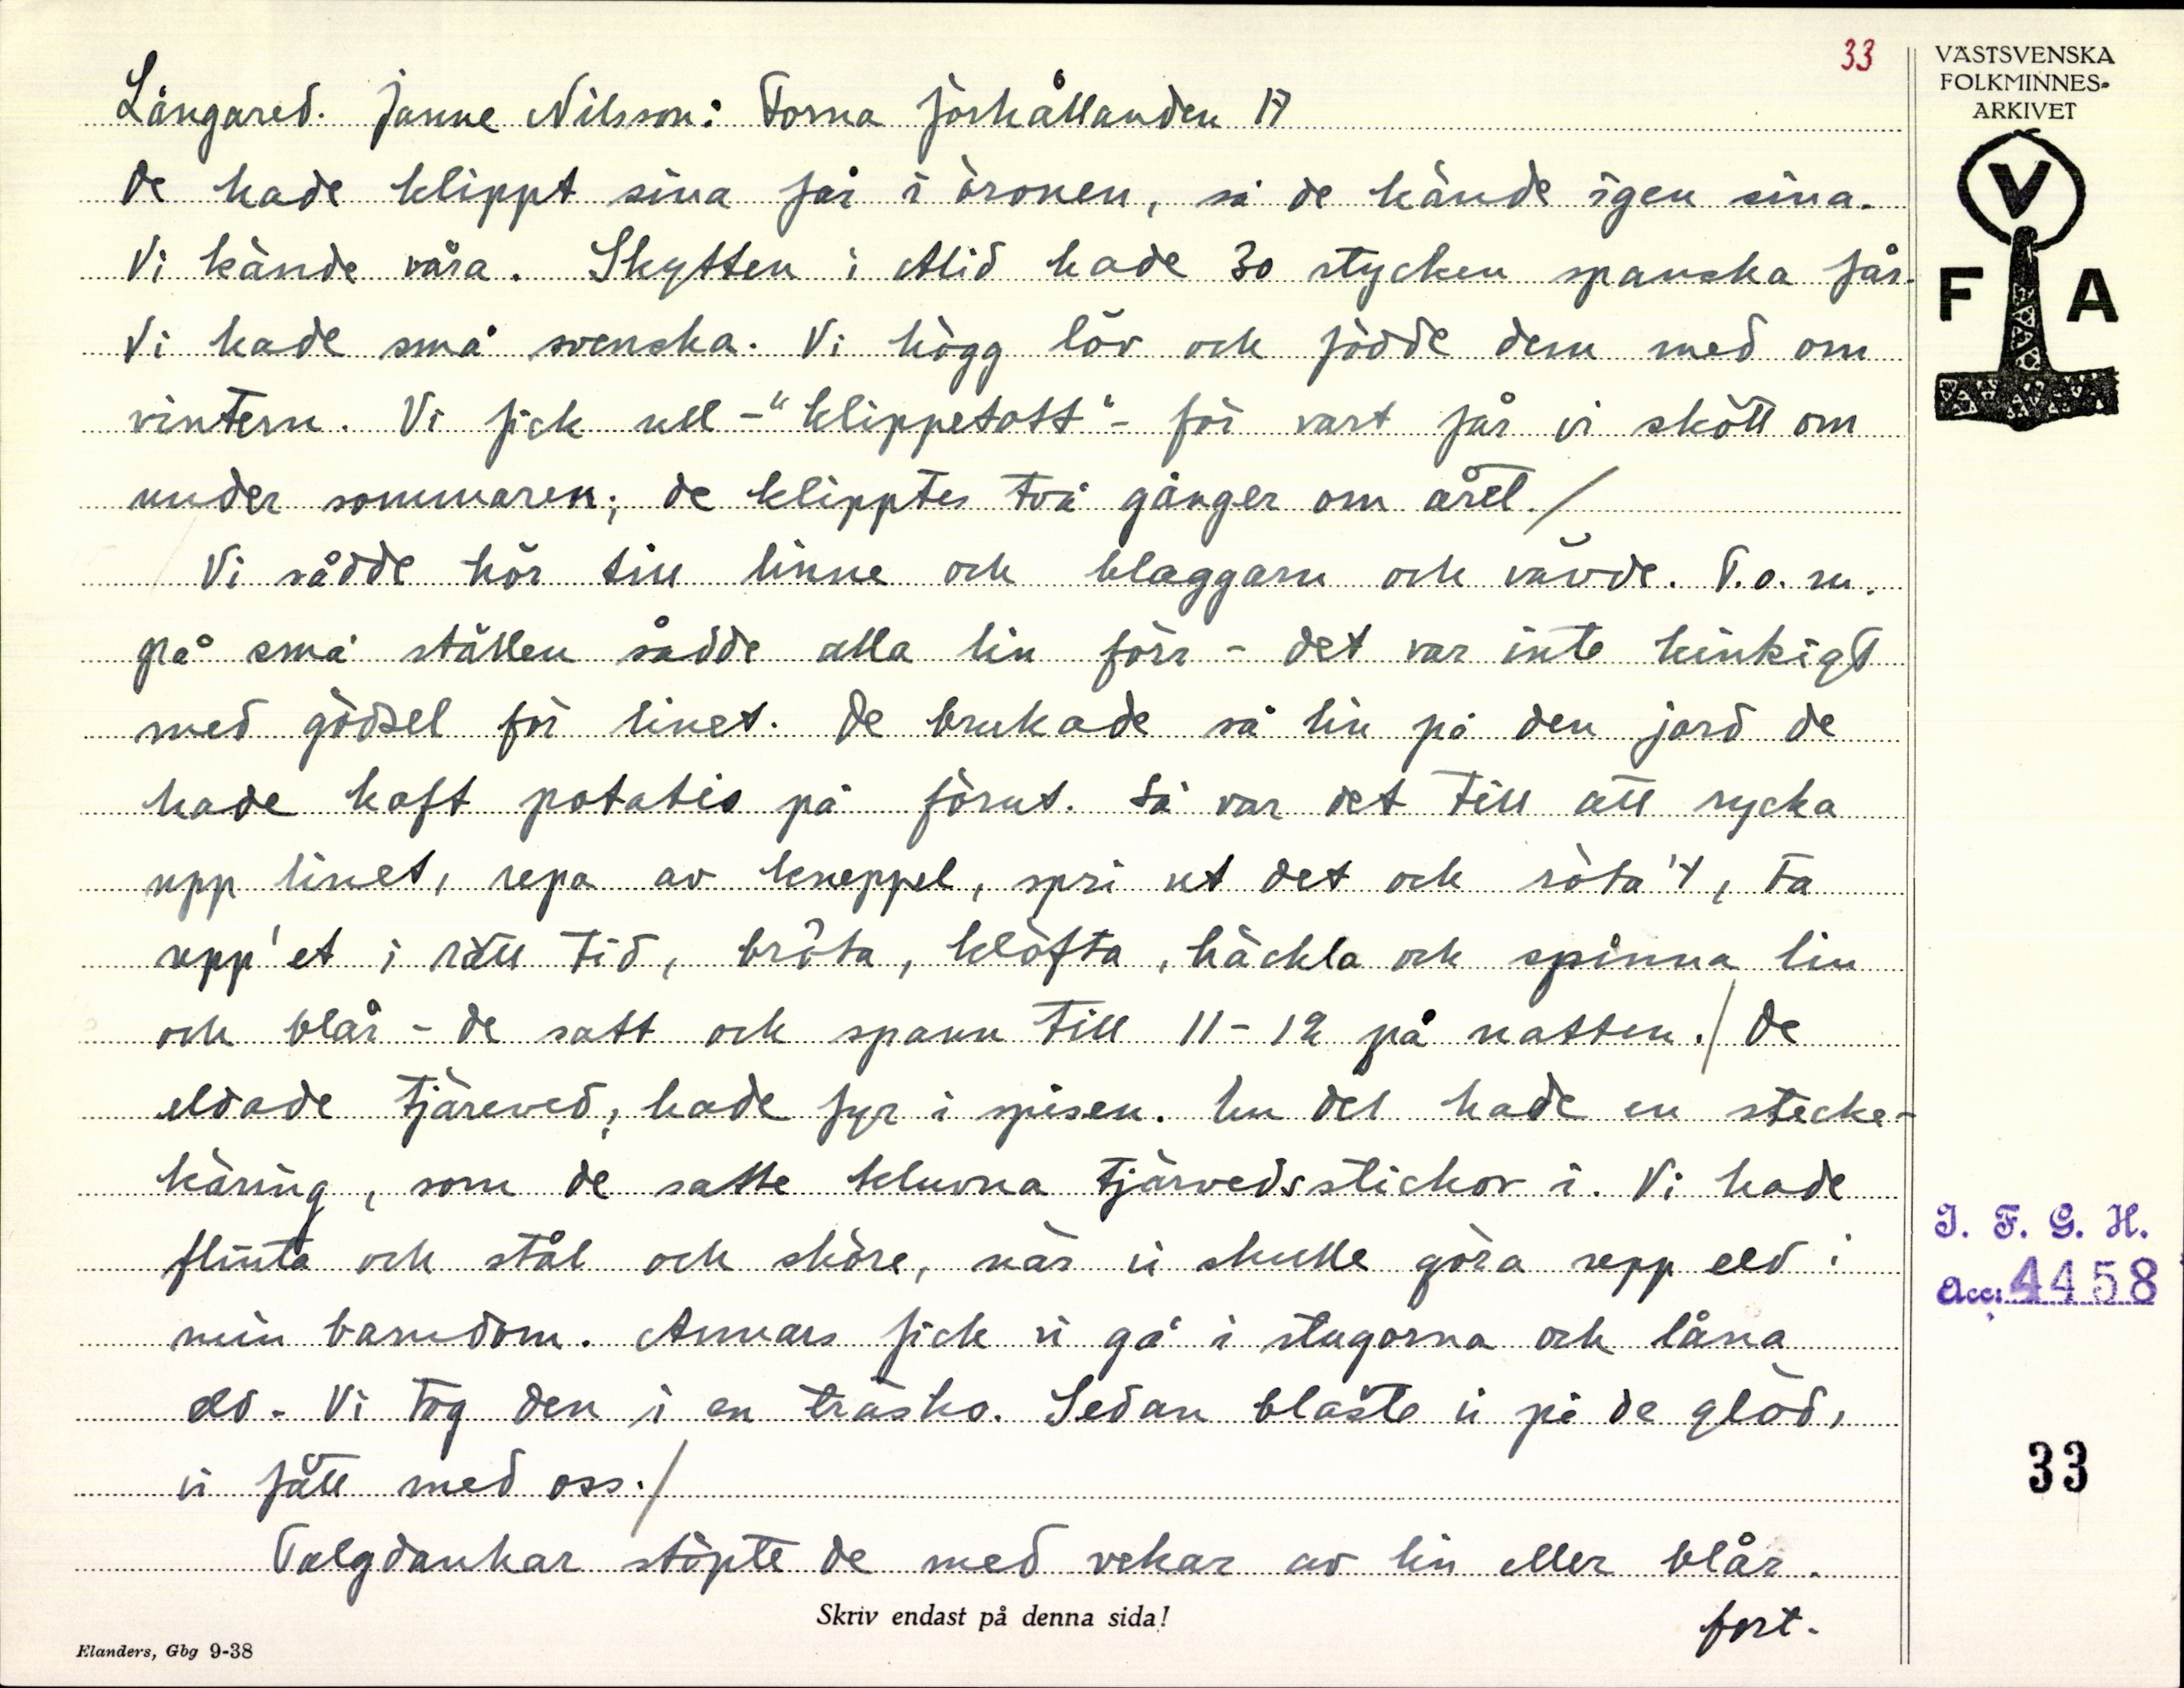 33
VÄSTSVENSKA
FOLKMINNES-
ARKIVET
V
F A
Långared. Janne Nilsson: Forna förhållanden 17
De hade klippt sina får i öronen, så de kände igen sina.
Vi kände våra. Skytten i Alid hade 30 stycken spanska får.
Vi hade små svenska. Vi högg löv och födde dem med om
vintern. Vi fick ull -"klippetott"- för vart får vi skött om
under sommaren; de klipptes två gånger om året./
Vi sådde hör till linne och blaggarn och vävde. T.o.m.
på små ställen sådde alla lin förr - det var inte kinkigt
med gödsel för linet. De brukade så lin på den jord de
hade haft potatis på förut. Så var det till att rycka
upp linet, repa av kneppel, spri ut det och röta't, ta
upp'et i rätt tid, bråta, klöfta, häckla och spinna lin
och blår - de satt och spann till 11-12 på natten./ De
eldade tjäreved, hade fyr i spisen. En del hade en stecke-
käring, som de satte kluvna tjärvedsstickor i. Vi hade
flinta och stål och sköre, när vi skulle göra upp eld i
min barndom. Annars fick vi gå i stugorna och låna
eld. Vi tog den i en träsko. Sedan blåste vi på de glöd,
vi fått med oss./
Talgdankar stöpte de med vekar av lin eller blår.
fort.
Skriv endast på denna sida!
Elanders, Gbg 9-38
I. F. G. H.
Acc: 4458
33